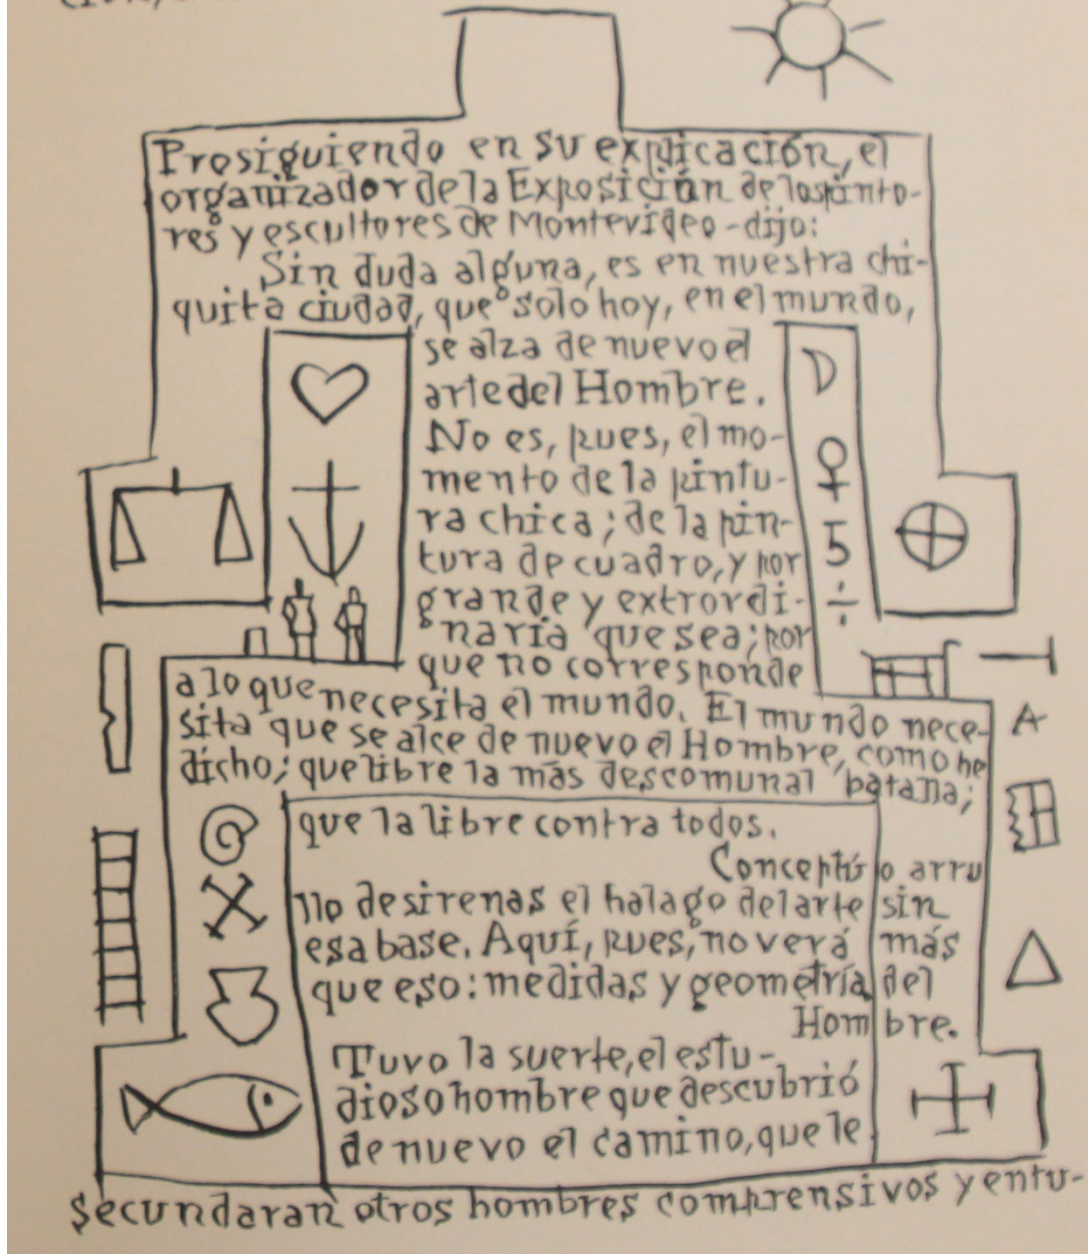 Prosiguiendo en su explicación, el
organizador de la Exposición de los pinto-
res y escultores de Montevideo - dijo:
Sin duda alguna, es en nuestra chi-
quita ciudad, que solo hoy, en el mundo,
se alza de nuevo el
arte del Hombre.
No es, pues, el mo-
mento de la pintu-
ra chica; de la pin-
tura de cuadro, y por
grande y extrordi-
naria que sea; por
que no corresponde
a lo que necesita el mundo. El mundo nece-
sita que se alce de nuevo el Hombre, como he
dicho; que libre la más descomunal batalla;
que la libre contra todos.
Concepto o arru
llo de sirenas el halago del arte sin
esa base. Aquí, pues, no verá más
que eso: medidas y geometría del
Hombre.
Tuvo la suerte, el estu-
dioso hombre que descubrió
de nuevo el camino, que le
secundaran otros hombres comprensivos y entu-
5
÷
A